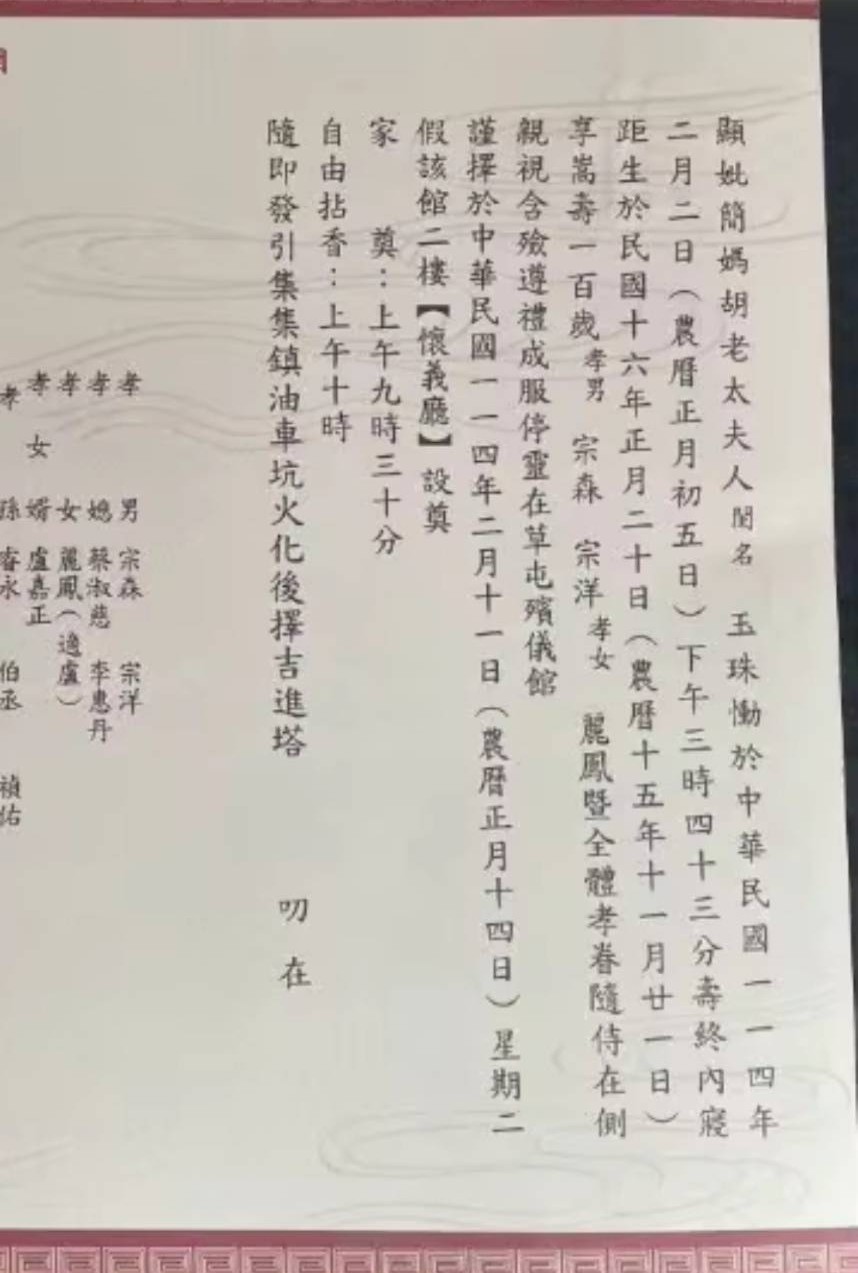 顯妣簡媽胡老太夫人閨名 玉珠慟於中華民國一一四年
二月二日（農曆正月初五日）下午三時四十三分壽終內寢
距生於民國十六年正月二十日（農曆十五年十一月廿一日）
享嵩壽一百歲孝男 宗森 宗洋孝女 麗鳳暨全體孝眷隨侍在側
親視含殮遵禮成服停靈在草屯殯儀館
謹擇於中華民國一一四年二月十一日（農曆正月十四日）星期二
假該館二樓【懷義廳】設奠
家 奠：上午九時三十分
自由拈香：上午十時
隨即發引集集鎮油車坑火化後擇吉進塔 叨在
孝 男 宗森 宗洋
孝 媳 蔡淑慈 李惠丹
孝 女 麗鳳（適盧）
孝 女 婿 盧嘉正
孝 孫 睿永 伯丞 禎佑